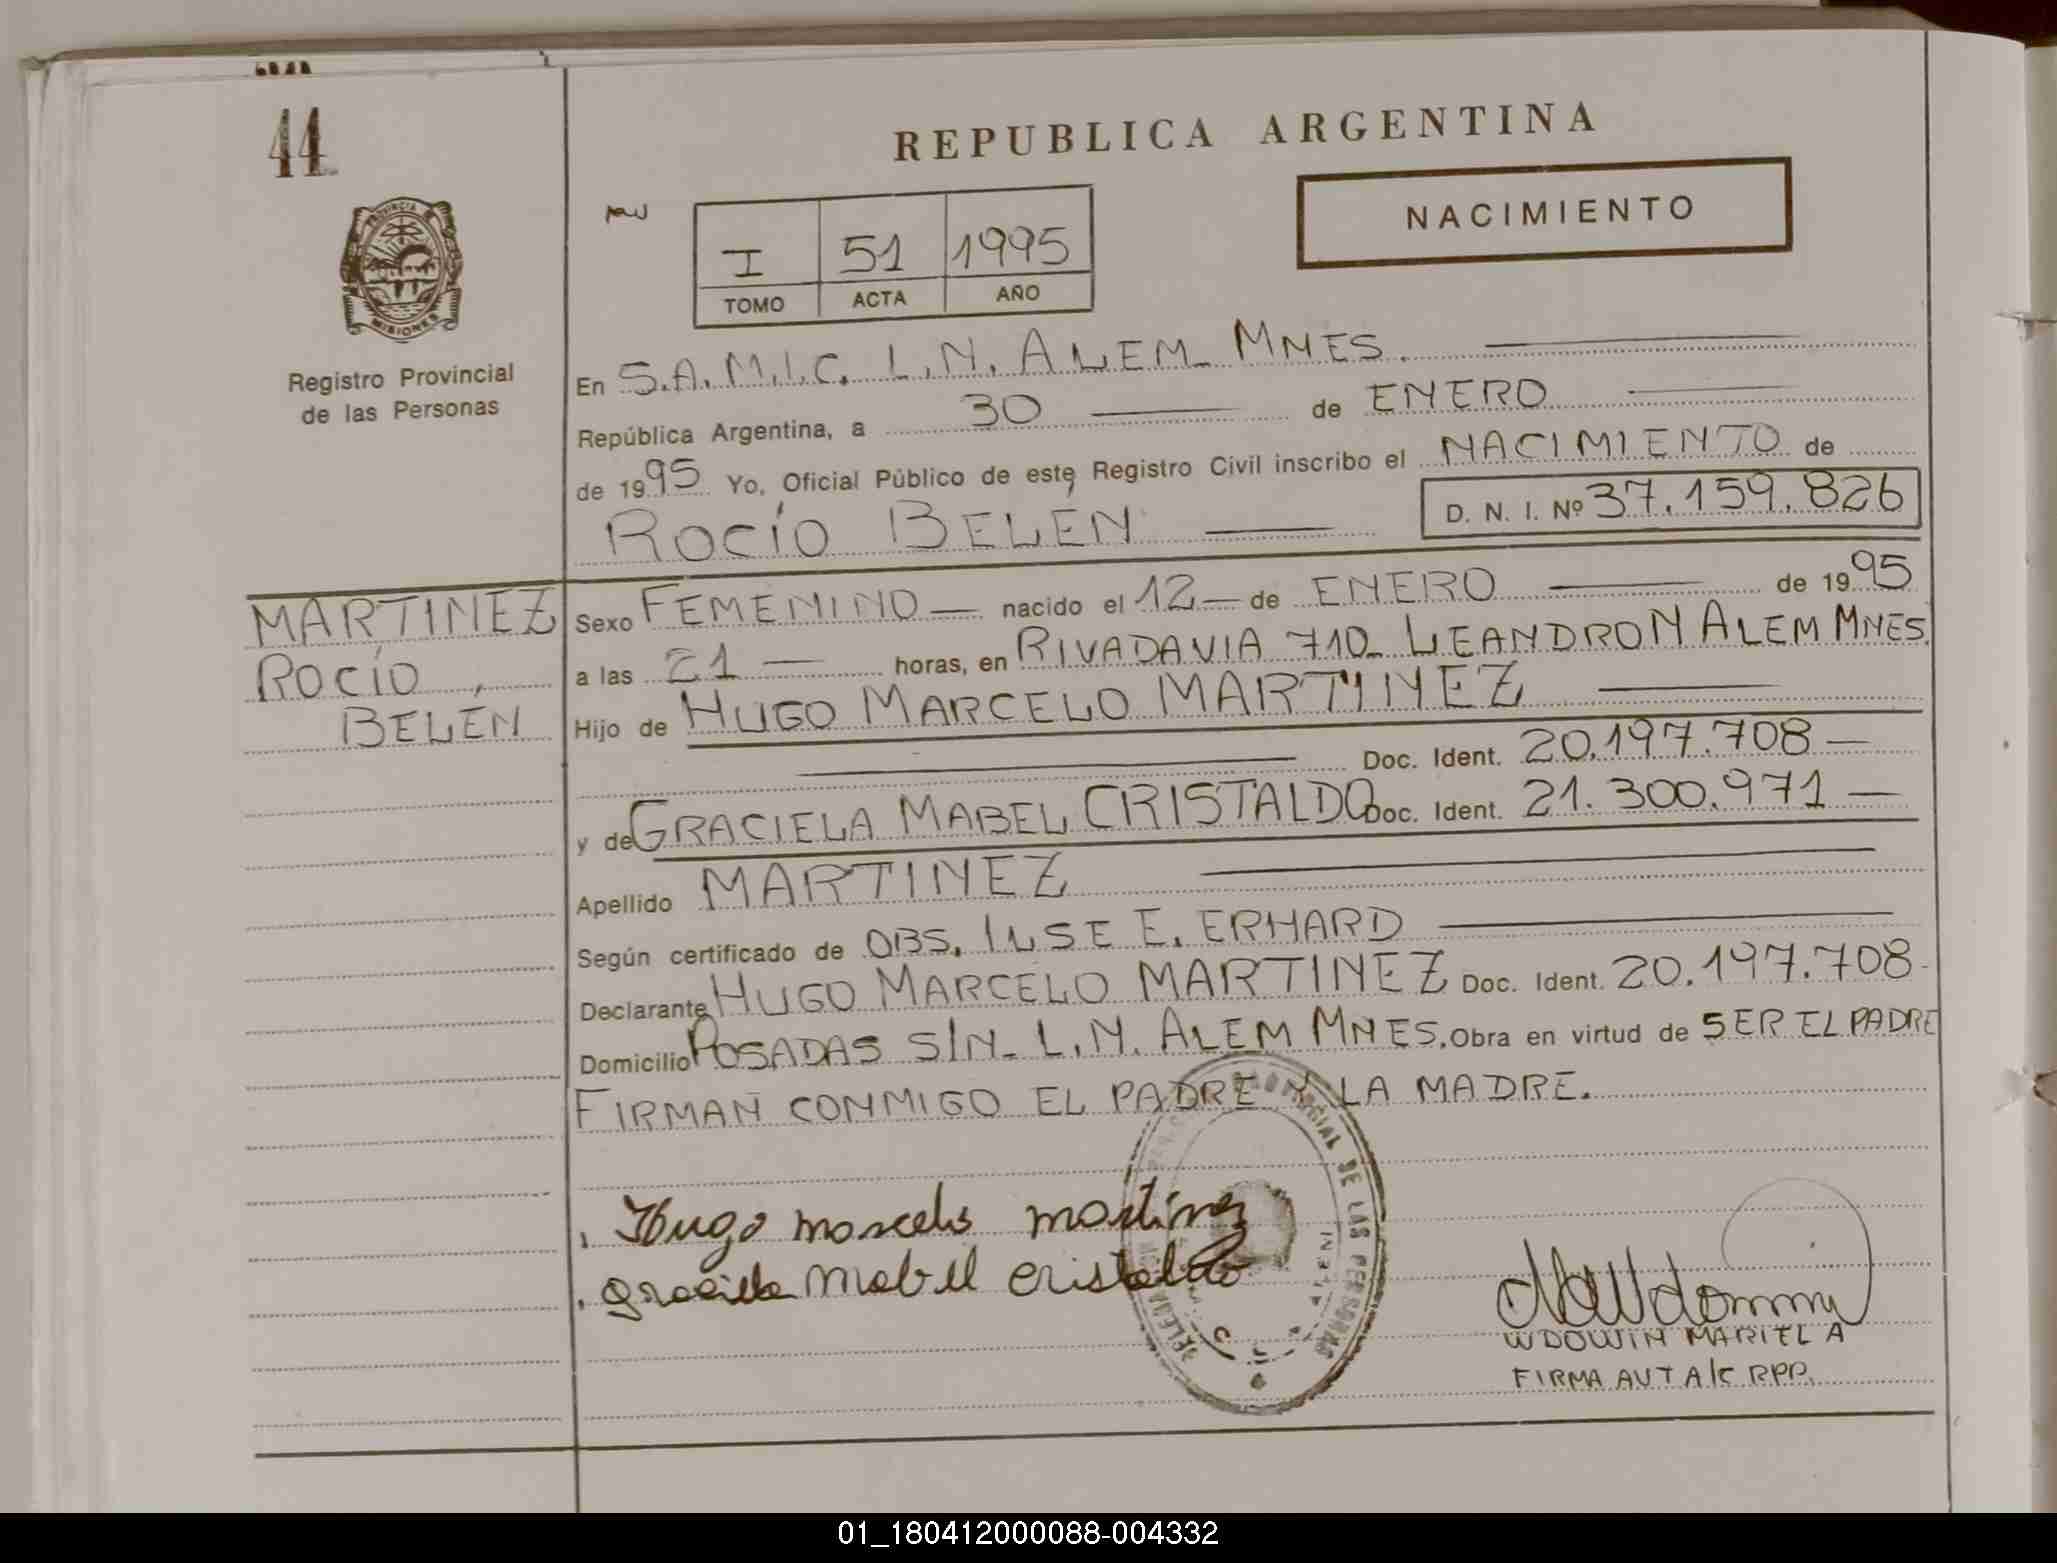 44
REPUBLICA ARGENTINA
NACIMIENTO
I 51 1995
TOMO ACTA AÑO
PROVINCIA DE MISIONES
Registro Provincial
de las Personas
En S.A.M.I.C. L.N. ALEM MNES.
República Argentina, a 30 de ENERO
de 1995 Yo, Oficial Público de este Registro Civil inscribo el NACIMIENTO de
ROCÍO BELÉN D. N. I. Nº 37.159.826
MARTINEZ
ROCÍO
BELÉN
Sexo FEMENINO nacido el 12 de ENERO de 1995
a las 21 horas, en RIVADAVIA 710 - LEANDRO N ALEM MNES.
Hijo de HUGO MARCELO MARTINEZ
Doc. Ident. 20.197.708
y de GRACIELA MABEL CRISTALDO Doc. Ident. 21.300.971
Apellido MARTINEZ
Según certificado de OBS. ILSE E. ERHARD
Declarante HUGO MARCELO MARTINEZ Doc. Ident. 20.197.708
Domicilio POSADAS S/N - L.N. ALEM MNES. Obra en virtud de SER EL PADRE
FIRMAN CONMIGO EL PADRE Y LA MADRE.
Hugo marcelo martinez
graciela mabel cristaldo
DE LAS PERSONAS
WDOWIN MARIELA
FIRMA AUT A/C RPP.
01_180412000088-004332